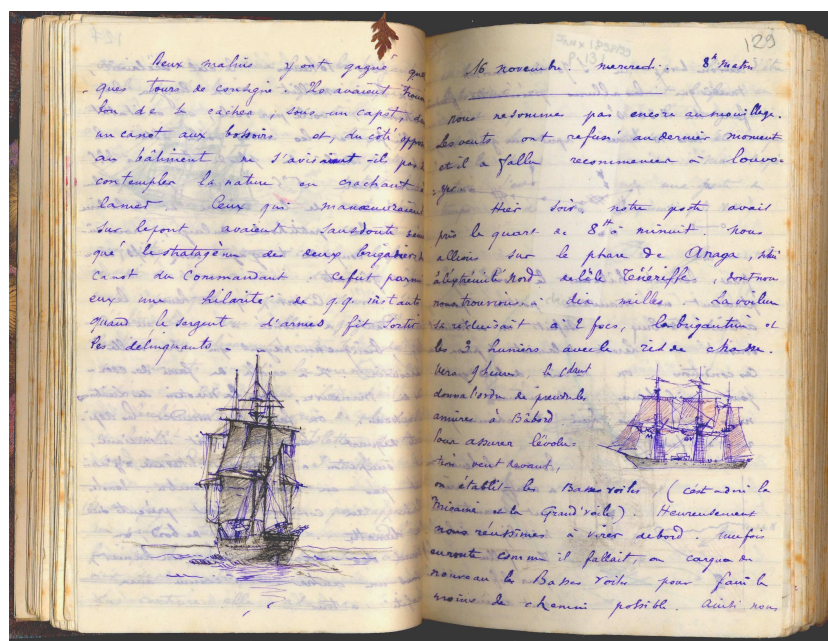 Deux matins y ont gagné quel
ques tours de consigne. Ils avaient trouvé
bon de se cacher, sous un capot, de
un canot aux bossoirs et, du côté opposé
au bâtiment ne s'avisaient-ils pas de
contempler la nature en crachant
la mer. Ceux qui manœuvraient
sur le pont avaient sans doute
que le stratagème des deux brigadiers du
canot du Commandant. Ce fut parmi
eux une hilarité de q.q. instants
quand le sergent d'armes, fit sortir
les delinquants.
129
16 novembre. mercredi. 8h matin
nous ne sommes pas encore au mouillage.
Les vents ont refusé au dernier moment
et il a fallu recommencer à louvo-
yer.
Hier soir, notre poste avait
pris le quart de 8h à minuit. nous
allions sur le phare de Anaga, situé
à l'extrémité Nord de l'île Ténériffe, dont nous
nous trouvions à dix milles. La voilure
se réduisait à 2 focs, la brigantine et
les 3 huniers avec le ris de chasse.
Vers 9 heures, le Cdant
donna l'ordre de prendre les
amures à Bâbord
Pour assurer l'évolu-
tion vent devant,
on établit les Basses voiles, (c'est à dire la
Misaine et la Grand'voile). Heureusement
nous réussîmes à virer de bord. Une fois
en route comme il fallait, on cargua de
nouveau les Basses voiles pour faire le
moins de chemin possible. Ainsi nous